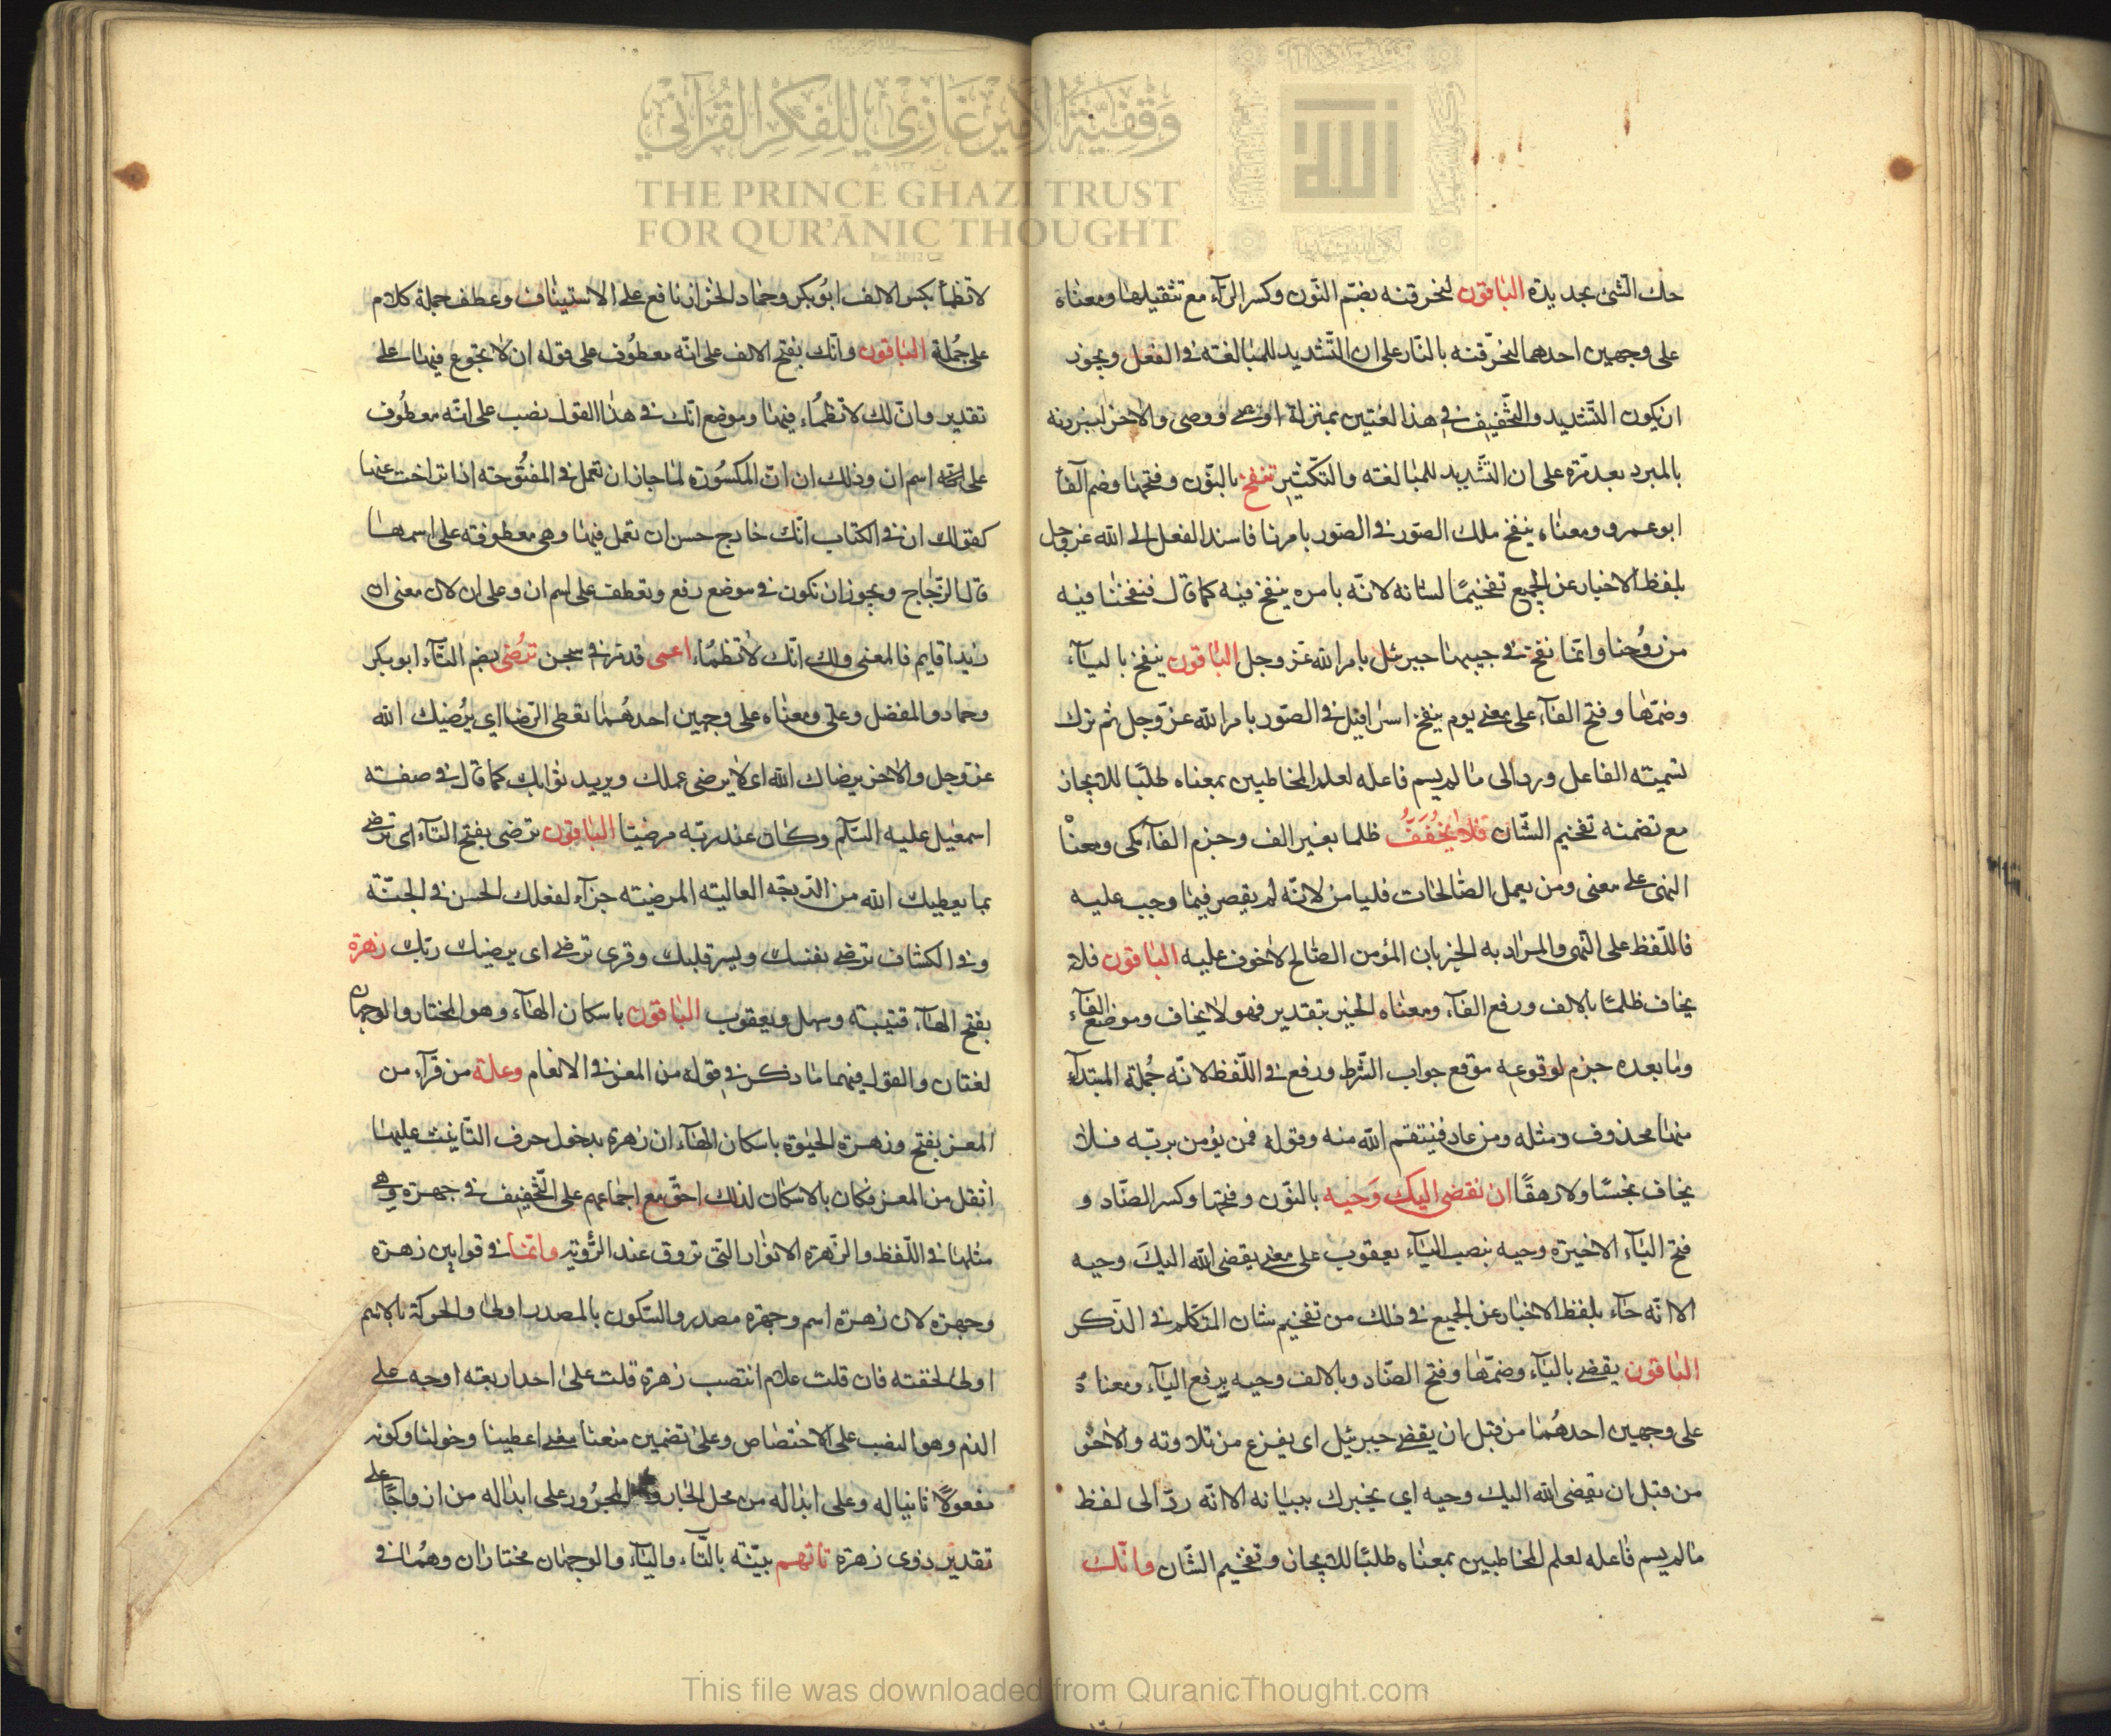 وَقْفِيَّةُ الأَمِيرْ غَازِي لِلْفِكْرِ القُرْآنِي
THE PRINCE GHAZI TRUST
FOR QUR'ĀNIC THOUGHT
حك الشئ بحديدة الباقون لنحرقنه بضم النون وكسر الرآء مع تثقيلها ومعناه
على وجهين احدهما لنحرّقنه بالنار على ان التشديد للمبالغة فى الفعل ويجوز
ان يكون التشديد والتخفيف فى هذا لغتين بمنزلة اوصى ووصى والاخر لنبردنه
بالمبرد بعد مرة على ان التشديد للمبالغة والتكثير ننفخ بالنون وفتحها وضم الفآ
ابو عمرو ومعناه ينفخ ملك الصور فى الصور بامرنا فاسند الفعل الى الله عز وجل
بلفظ الاخبار عن الجميع تفخيمًا لشانه لانه بامره ينفخ فيه كما قال فنفخنا فيه
من روُحنا وانما نفخ فى جيبها جبرئل بامر الله عز وجل الباقون ينفخ باليآء
وضمّها وفتح الفآء على معنى يوم ينفخ اسرافيل فى الصور بامر الله عز وجل ثم ترك
تسميته الفاعل ورد الى ما لم يسم فاعله لعلم المخاطبين بمعناه طلبًا للايجاز
مع تضمنه تفخيم الشان فلا يخف ظلما بغير الف وجزم الفآء مكى ومعناه
النهى على معنى ومن يعمل الصالحات فليامن لانه لم يقصر فيما وجب عليه
فاللفظ على النهى والمراد به الخبر بان المؤمن الصالح لاخوف عليه الباقون فلا
يخاف ظلمًا بالالف ورفع الفآء ومعناه الخبر بتقدير فهو لا يخاف وموضع الفآء
وما بعده جزم لوقوعه موقع جواب الشرط ورفع فى اللفظ لانه جُملة المبتدآء
منها محذوف ومثله ومن عاد فينتقم الله منه وقوله فمن يؤمن بربه فلا
يخاف بخسًا ولا رهقًا ان نقضى اليك وَحيه بالنون وفتحها وكسر الضاد و
فتح اليآء الاخيرة وحيه بنصب اليآء يعقوب على معنى يقضى الله اليكَ وحيه
الا انه جآء بلفظ الاخبار عن الجميع فى ذلك من تفخيم شان المتكلم فى الذكر
الباقون يقضى باليآء وضمّها وفتح الضاد وبالالف وحيه برفع اليآء ومعناهُ
على وجهين احدهُما من قبل ان يقضى جبرئيل اى يفرغ من تلاوته والاخر
من قبل ان يقضى الله اليك وحيه اي يخبرك ببيانه الا انه ردّ الى لفظ
ما لم يسم فاعله لعلم المخاطبين بمعناه طلبًا للايجاز وتفخيم الشان وانّك
لا تظمأ بكسر الالف ابوُ بكر وحماد الخزاز نافع على الاستيناف وعطف جملة كلام
على جُملة الباقون وانّك بفتح الالف على انه معطوف على قوله ان لا تجوع فيها على
تقدير وانّ لك لا تظماُء فيها وموضع انّك فى هذا القول نصب على انه معطوُف
على اسم ان وذلك ان انّ المكسوُرة لما جاز ان تعمل فى المفتُوحة اذا تراخت عنها
كقولك ان فى الكتاب انّك خارج حسن ان تعمل فيها وهى معطوفة على اسمها
قال الزجاج ويجوز ان تكون فى موضع رفع وتعطف على اسم ان وعلى ان لان معنى ان
زيدا قايم فالمعنى ولك انّك لا تظمُاء اعمى قد مر فى سبحن تُرضى بضم التآء ابو بكر
وحماد والمفضل وعلى ومعناه على وجهين احدهُما تعطى الرضا اي يُرضيك الله
عز وجل والاخر يرضاك الله اى لا يرضى عملك ويريد ثوابك كما قال فى صفته
اسمعيل عليه السلم وكان عند ربه مرضيا الباقون ترضى بفتح التآء اى ترضى
بما يعطيك الله من الدرجة العالية المرضية جزآء لفعلك الحسن فى الجنّة
وفى الكشاف ترضى نفسك ويسر قلبك وقرى ترضى اى يرضيك ربّك زهرة
بفتح الهآء قتيبة وسهل ويعقوب الباقون باسكان الهآء وهو المختار والوجهان
لغتان والقول فيهما ما ذكر فى قوله من المعز فى الانعام وعلة من قرآء من
المعز بفتح وزهرة الحيوة باسكان الهآء ان زهرة بدخول حرف التانيث عليها
اثقل من المعز فكان بالاسكان لذلك احقّ مع اجماعهم على التخفيف فى جهرة وهى
مثلها فى اللفظ والزهرة الانوار التى تروق عند الرُؤية وانما فى قوابين زهرة
وجهرة لان زهرة اسم وجهرة مصدر والسكون بالمصدر اولى والحركة بالاسم
اولى لخفته فان قلت علام انتصب زهرة قلت على احد اربعة اوجه على
الذم وهو النصب على الاختصاص وعلى تضمين متعنا معنى اعطينا وخولنا وكونه
مفعولاً ثانيا له وعلى ابداله من محل الجار والمجرُور على ابداله من ازواجًا على
تقدير ذوى زهرة تاتهم بيّنة بالتآء واليآء والوجهان مختاران وهُما فى
This file was downloaded from QuranicThought.com